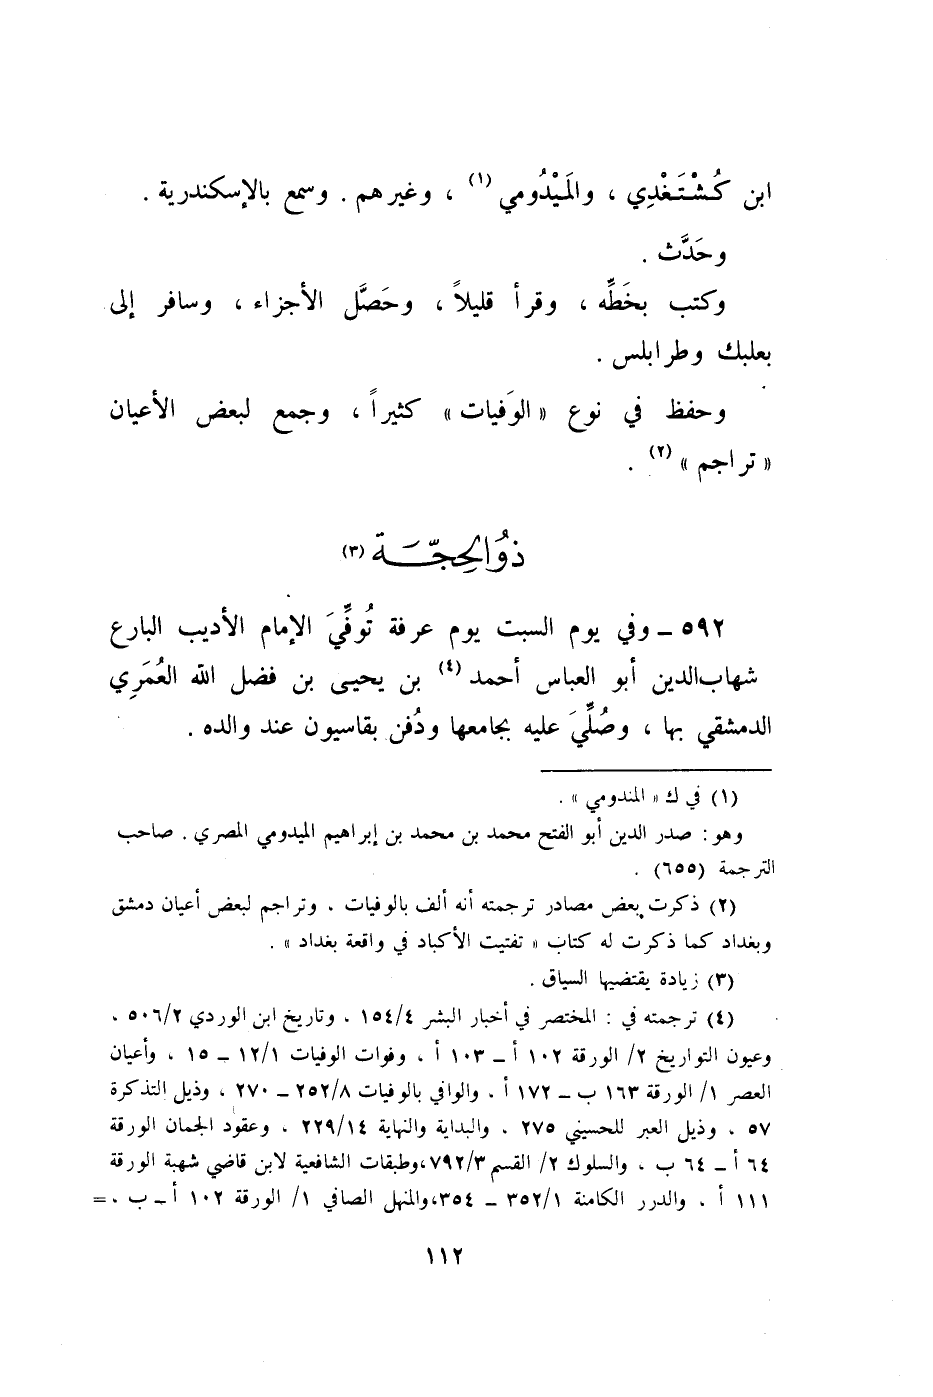 ابن كُشْتَغْدِي ، والمَيْدُومي (١) ، وغيرهم . وسمع بالإسكندرية .
وحَدَّث .
وكتب بخَطِّه ، وقرأ قليلاً ، وحَصَّل الأجزاء ، وسافر إلى
بعلبك وطرابلس .
وحفظ في نوع « الوَفيات » كثيراً ، وجمع لبعض الأعيان
« تراجم » (٢) .
ذُو الحِجَّة (٣)
٥٩٢ – وفي يوم السبت يوم عرفة تُوفِّيَ الإمام الأديب البارع
شهاب‌الدين أبو العباس أحمد (٤) بن يحيى بن فضل الله العُمَرِي
الدمشقي بها ، وصُلِّيَ عليه بجامعها ودُفن بقاسيون عند والده .
(١) في ك « المندومي » .
وهو : صدر الدين أبو الفتح محمد بن محمد بن إبراهيم الميدومي المصري . صاحب
الترجمة (٦٥٥) .
(٢) ذكرت بعض مصادر ترجمته أنه ألف بالوفيات . وتراجم لبعض أعيان دمشق
وبغداد كما ذكرت له كتاب « تفتيت الأكباد في واقعة بغداد » .
(٣) زيادة يقتضيها السياق .
(٤) ترجمته في : المختصر في أخبار البشر ١٥٤/٤ . وتاريخ ابن الوردي ٥٠٦/٢ .
وعيون التواريخ ٢/ الورقة ١٠٢ أ – ١٠٣ أ . وفوات الوفيات ١٢/١ – ١٥ . وأعيان
العصر ١/ الورقة ١٦٣ ب – ١٧٢ أ . والوافي بالوفيات ٢٥٢/٨ – ٢٧٠ . وذيل التذكرة
٥٧ . وذيل العبر للحسيني ٢٧٥ . والبداية والنهاية ٢٢٩/١٤ . وعقود الجمان الورقة
٦٤ أ – ٦٤ ب . والسلوك ٢/ القسم ٧٩٢/٣،وطبقات الشافعية لابن قاضي شهبة الورقة
١١١ أ . والدرر الكامنة ٣٥٢/١ – ٣٥٤،والمنهل الصافي ١/ الورقة ١٠٢ أ – ب . =
١١٢